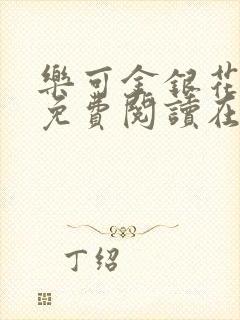 樂可金銀花
免費閱讀在
丁绍